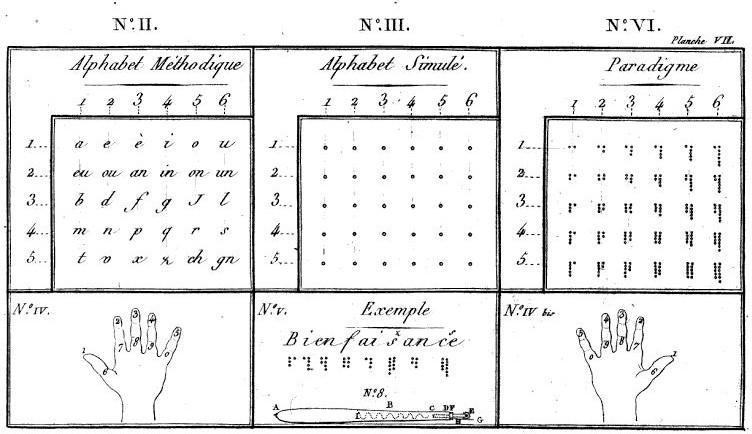 N.º II.
N.º III.
N.º VI.
Planche VII.
Alphabet Méthodique
1 2 3 4 5 6
1 a e è i o u
2 eu ou an in on un
3 b d f g J l
4 m n p q r s
5 t v x z ch gn
Alphabet Simulé.
1 2 3 4 5 6
1
2
3
4
5
Paradigme
1 2 3 4 5 6
1
2
3
4
5
N.º IV.
1 2 3 4 5
6 7 8 9 0
N.º V.
Exemple
Bienfaisance
N.º 8.
A B C D F E
H G
N.º IV bis
5 4 3 2 1
0 9 8 7 6